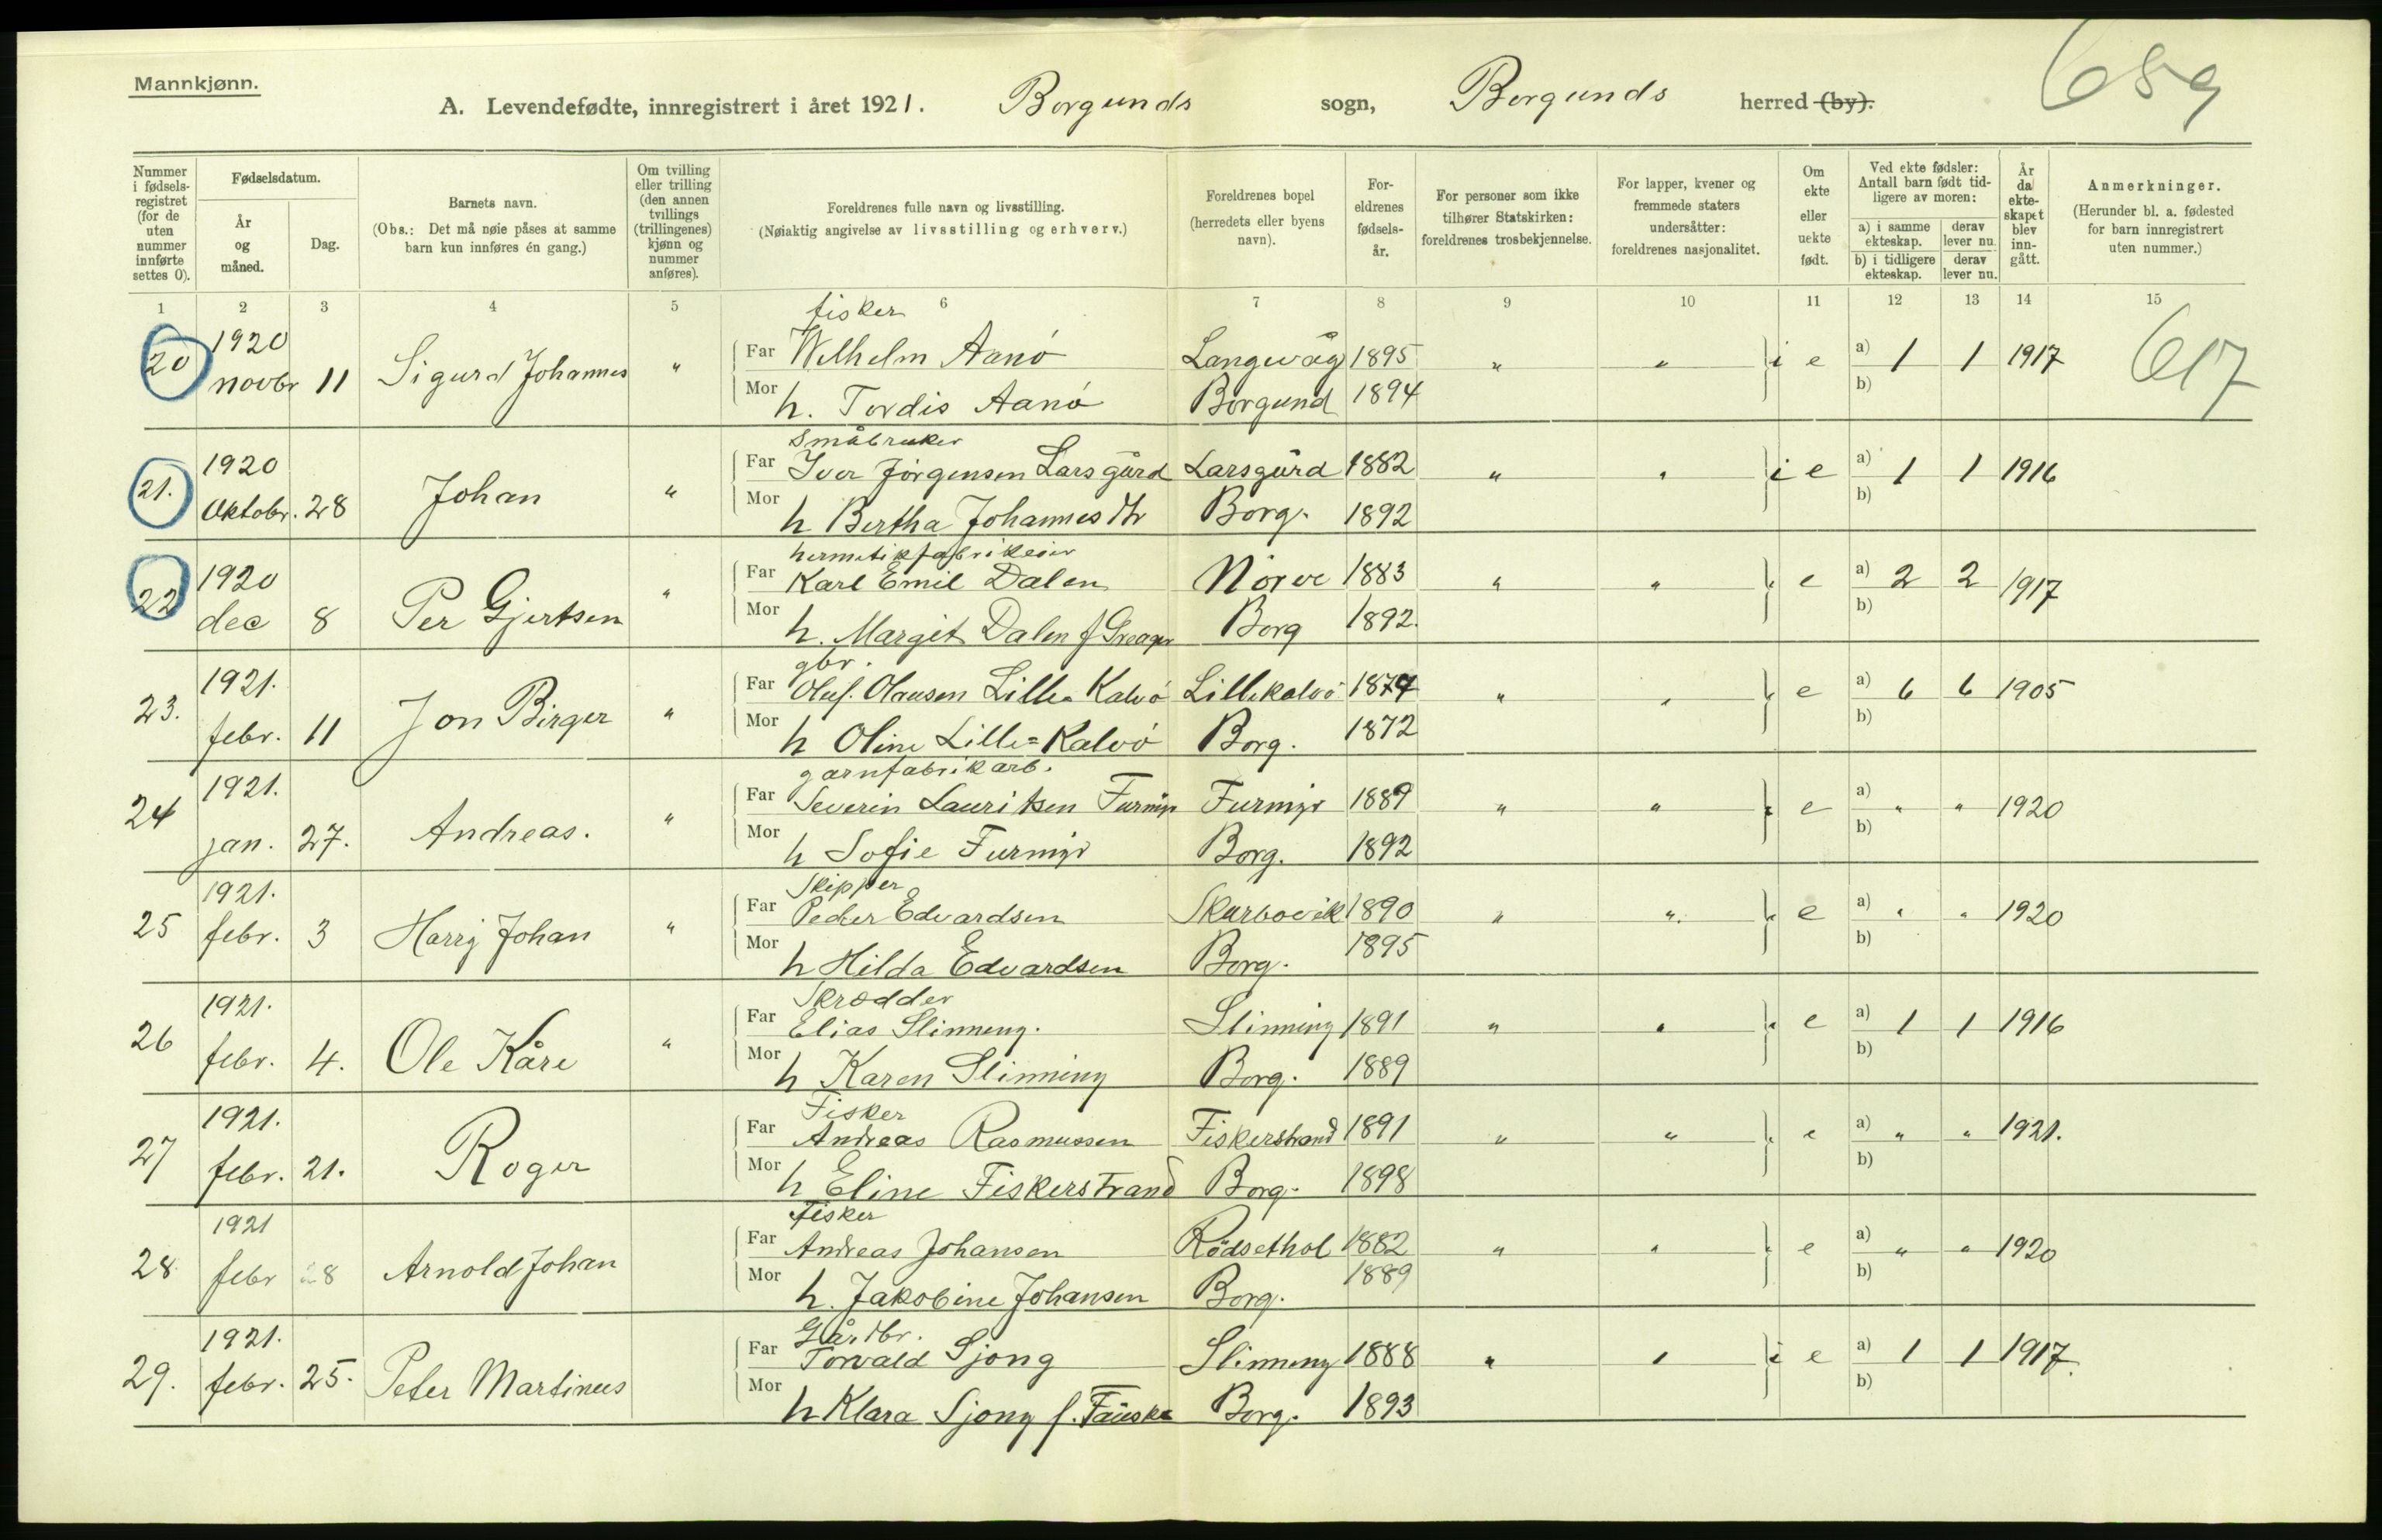 Mannkjønn.
689
A. Levendefødte, innregistrert i året 1921. Borgunds sogn, Borgunds herred (by).
Nummer i fødsels-registret (for de uten nummer innførte settes 0).
Fødselsdatum.
År og måned.
Dag.
Barnets navn.
(Obs.: Det må nøie påses at samme barn kun innføres én gang.)
Om tvilling eller trilling (den annen tvillings (trillingenes) kjønn og nummer anføres).
Foreldrenes fulle navn og livsstilling.
(Nøiaktig angivelse av livsstilling og erhverv.)
Foreldrenes bopel (herredets eller byens navn).
For-eldrenes fødsels-år.
For personer som ikke tilhører Statskirken: foreldrenes trosbekjennelse.
For lapper, kvener og fremmede staters undersåtter: foreldrenes nasjonalitet.
Om ekte eller uekte født.
Ved ekte fødsler: Antall barn født tid-ligere av moren:
a) i samme ekteskap. derav lever nu.
b) i tidligere ekteskap. derav lever nu.
År da ekte-skapet blev inn-gått.
Anmerkninger.
(Herunder bl. a. fødested for barn innregistrert uten nummer.)
1 2 3 4 5 6 7 8 9 10 11 12 13 14 15
fisker
20 1920 novbr 11 Sigurd Johannes " Far Wilhelm Aanö Langevåg 1895 " " i e a) 1 1 1917 617
Mor h. Tordis Aanö Borgund 1894 b)
Småbruker
21. 1920 Oktobr. 28 Johan " Far Iver Jörgensen Larsgård Larsgård 1882 " " i e a) 1 1 1916
Mor h Bertha Johannes dtr Borg. 1892 b)
hermetikfabrikeier
22 1920 dec 8 Per Gjertsen " Far Karl Emil Dalen Nörve 1883 " " " e a) 2 2 1917
Mor h. Margit Dalen f Borg 1892. b)
gbr.
23. 1921. febr. 11 Jon Birger " Far Oluf. Olausen Lille=Kalvö Lillekalvö 1874 " " " e a) 6 6 1905
Mor h Oline Lille=Kalvö Borg. 1872 b)
garnfabrikarb.
24 1921. jan. 27. Andreas. " Far Severin Lauritsen Furmyr Furmyr 1889 " " " e a) " " 1920
Mor h Sofie Furmyr Borg. 1892 b)
Skipper
25 1921. febr. 3 Harry Johan " Far Peder Edvardsen Skarbovik 1890 " " " e a) " " 1920
Mor h Hilda Edvardsen Borg. 1895 b)
Skrædder
26 1921. febr. 4. Ole Kåre " Far Elias Slinning. Slinning 1891 " " " e a) 1 1 1916
Mor h Karen Slinning Borg. 1889 b)
Fisker
27 1921. febr. 21. Roger Far Andreas Rasmussen Fiskerstrand 1891 " " " e a) " " 1921.
Mor h Eline Fiskerstrand Borg. 1898 b)
Fisker
28 1921 febr 28 Arnold Johan Far Andreas Johansen Rödsethol 1882 " " " e a) " " 1920
Mor h. Jakobine Johansen Borg. 1889 b)
Gårdbr.
29. 1921. febr. 25. Peter Martinus Far Torvald Sjong Slinning 1888 " " i e a) 1 1 1917.
Mor h Klara Sjong f. Fauske Borg. 1893 b)